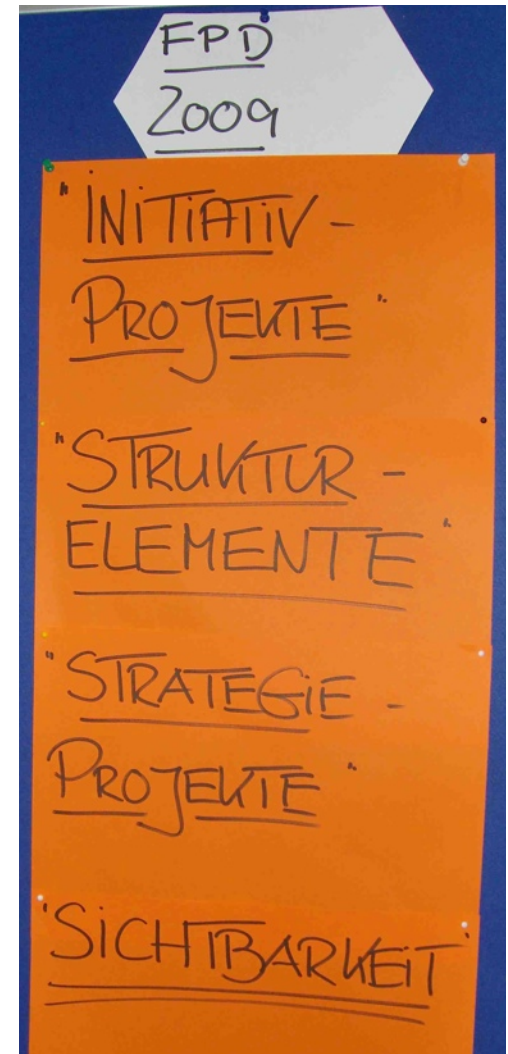 FPD
2009
"INiTiATiV -
PROJEKTE"
"STRUKTUR -
ELEMENTE"
"STRATEGiE -
PROJEKTE"
"SiCHTBARKEiT"